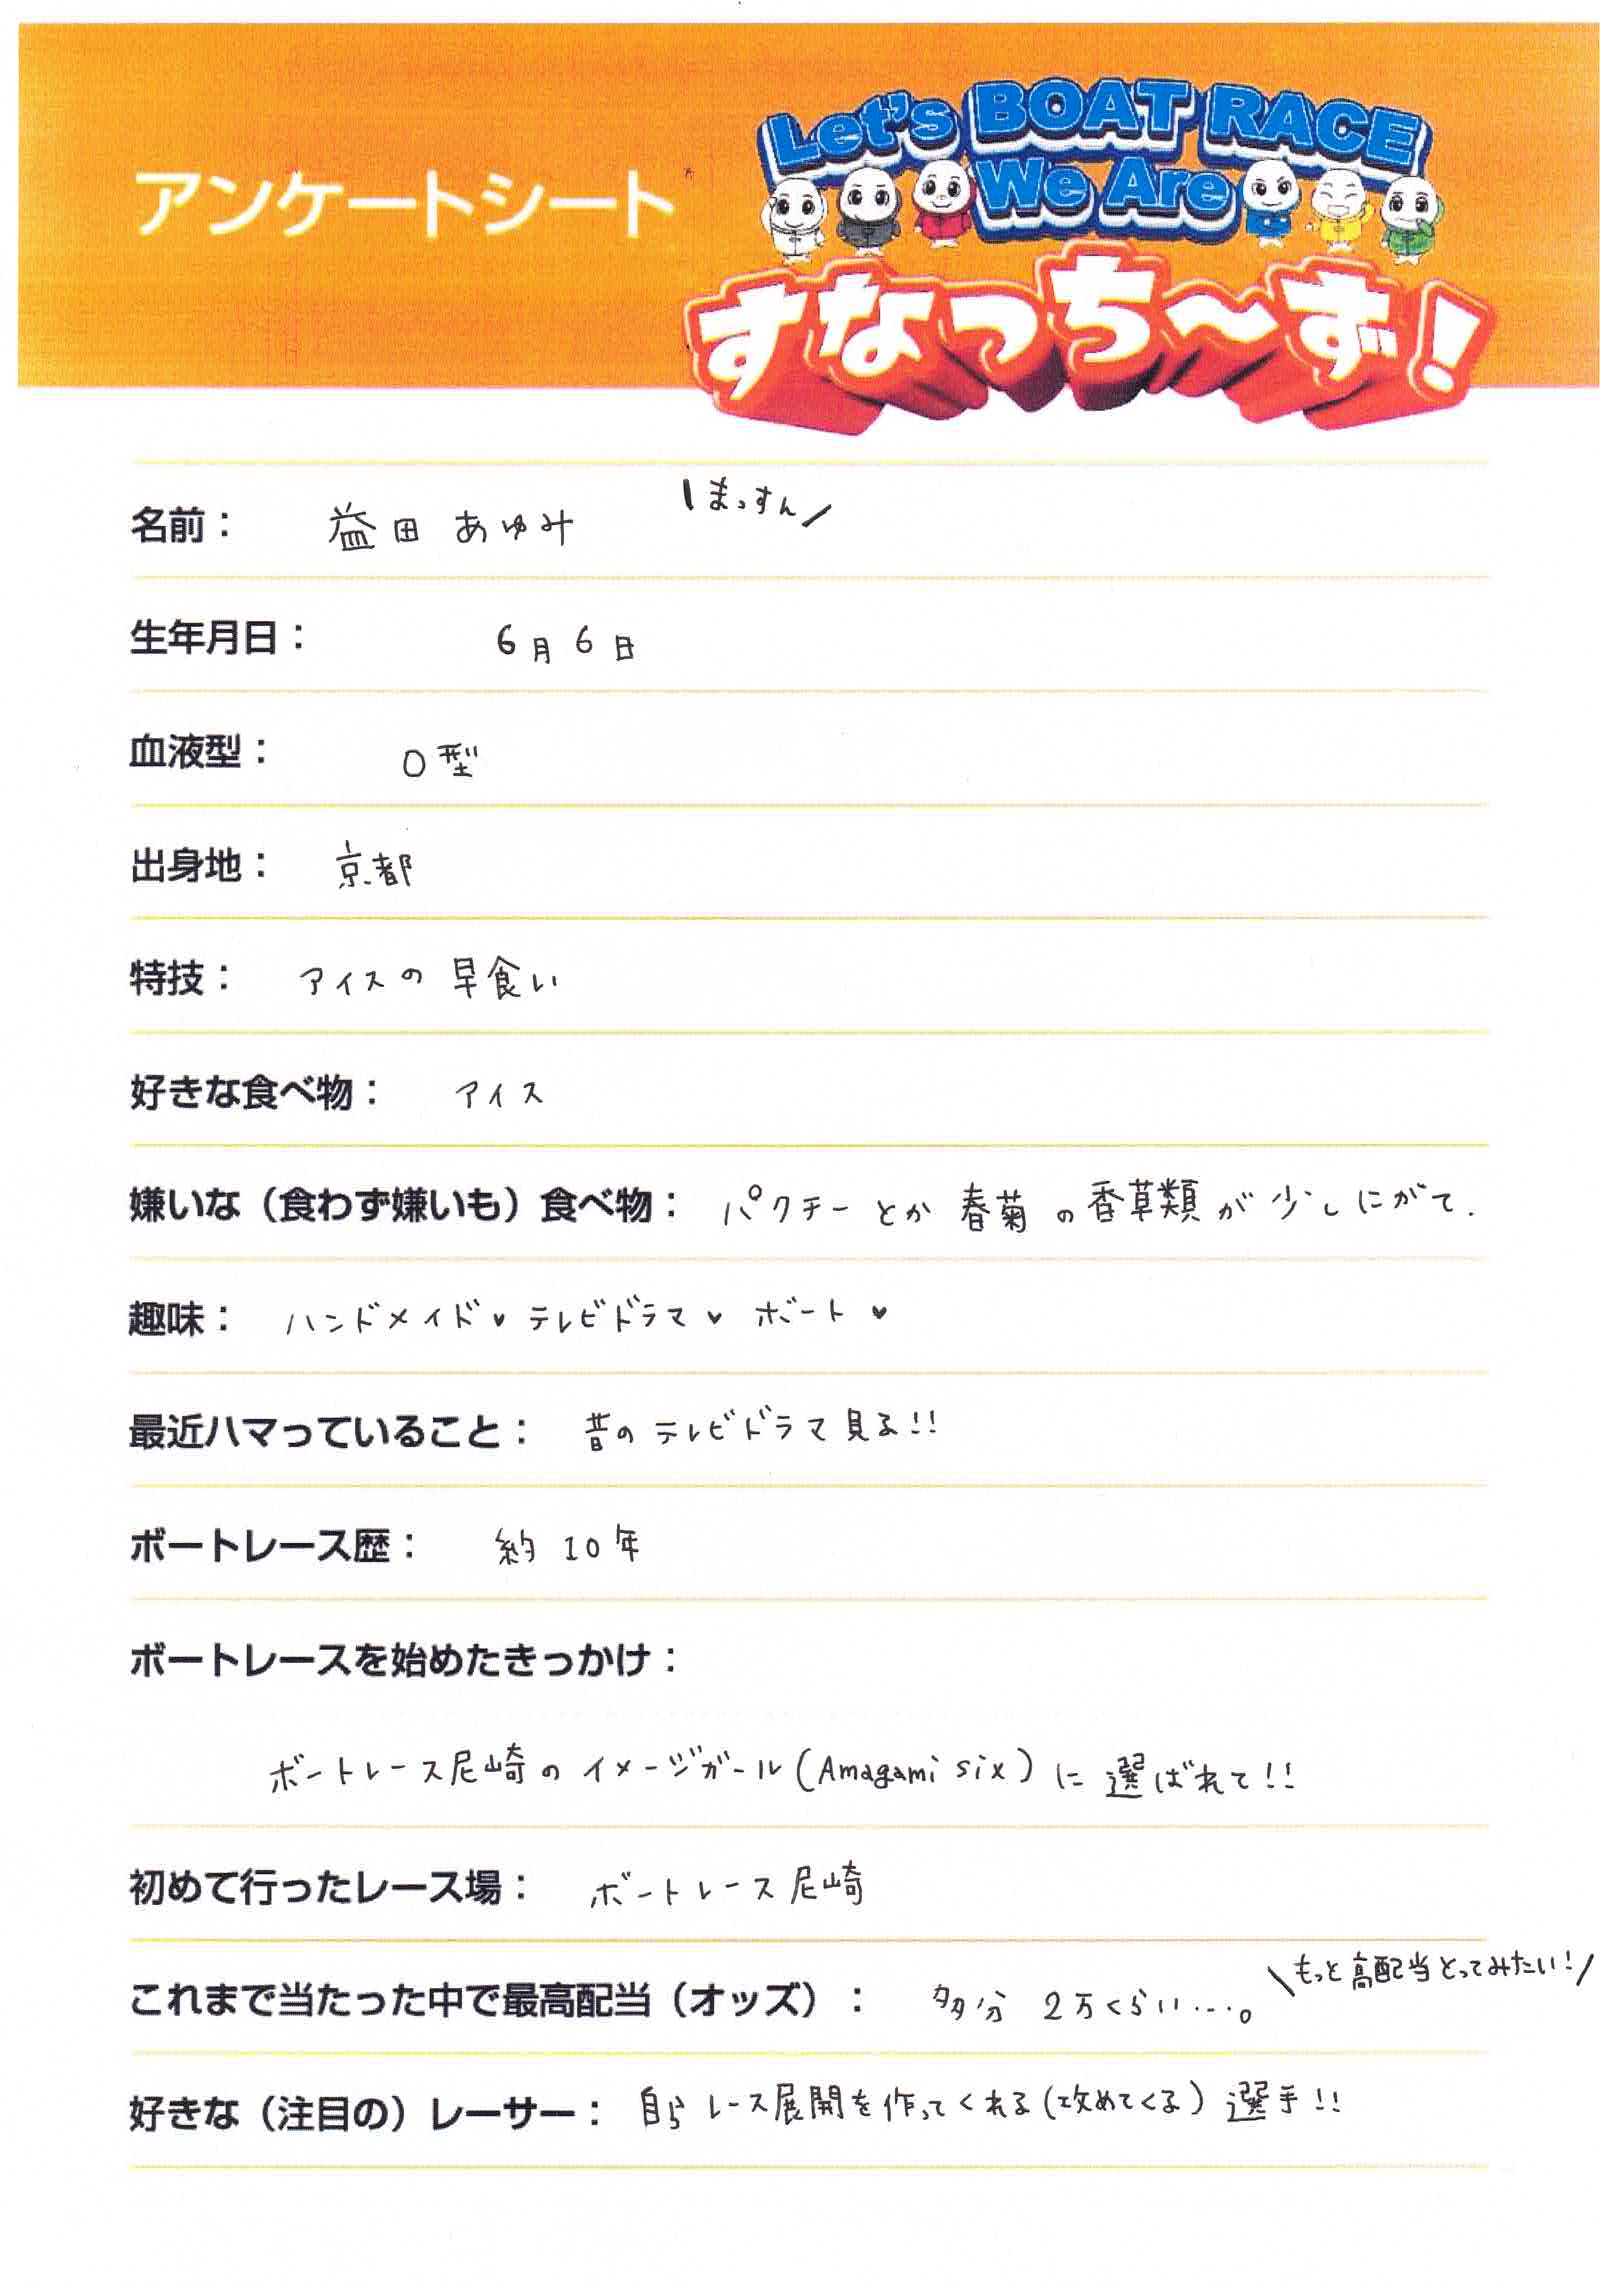 アンケートシート
Let's BOAT RACE
We Are
すなっち～ず!
名前： 益田 あゆみ \まっすん/
生年月日： 6月6日
血液型： O型
出身地： 京都
特技： アイスの早食い
好きな食べ物： アイス
嫌いな（食わず嫌いも）食べ物： パクチーとか春菊の香草類が少しにがて.
趣味： ハンドメイド♥テレビドラマ♥ ボート♥
最近ハマっていること： 昔のテレビドラマ見る!!
ボートレース歴： 約10年
ボートレースを始めたきっかけ：
ボートレース尼崎のイメージガール(Amagami six)に選ばれて!!
初めて行ったレース場： ボートレース尼崎
これまで当たった中で最高配当（オッズ）： 多分 2万くらい…。 \もっと高配当とってみたい!/
好きな（注目の）レーサー： 自らレース展開を作ってくれる(攻めてくる)選手!!